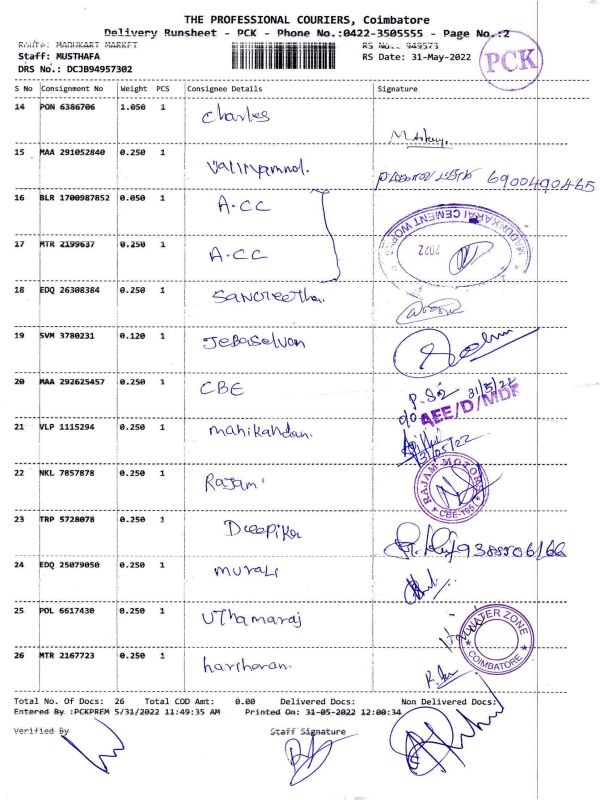 THE PROFESSIONAL COURIERS, Coimbatore
Delivery Runsheet - PCK - Phone No.:0422-3505555 - Page No.:2
Route: MADUKART MARKET RS No.: 949573
Staff: MUSTHAFA RS Date: 31-May-2022
DRS No.: DCJB94957302
PCK
S No Consignment No Weight PCS Consignee Details Signature
14 PON 6386706 1.050 1 Charles
15 MAA 291052840 0.250 1 6900490465
16 BLR 1700987852 0.050 1 A.CC
MADUKKARAI CEMENT WORKS
2022
17 MTR 2199637 0.250 1 A.CC
18 EDQ 26308384 0.250 1 Sangeetha
19 SVM 3780231 0.120 1 Jebaselvan
20 MAA 292625457 0.250 1 CBE 31/5/22
AEE/D/MDK
21 VLP 1115294 0.250 1 manikandan. 31/05/22
22 NKL 7857878 0.250 1 Rajam
RAJAM MOTORS
CBE-105
23 TRP 5728078 0.250 1 Deepika
24 EDQ 25079050 0.250 1 murali
25 POL 6617430 0.250 1 Uthamaraj
WATER ZONE
COIMBATORE
26 MTR 2167723 0.250 1 hariharan.
Total No. Of Docs: 26 Total COD Amt: 0.00 Delivered Docs: Non Delivered Docs:
Entered By :PCKPREM 5/31/2022 11:49:35 AM Printed On: 31-05-2022 12:00:34
Verified By Staff Signature